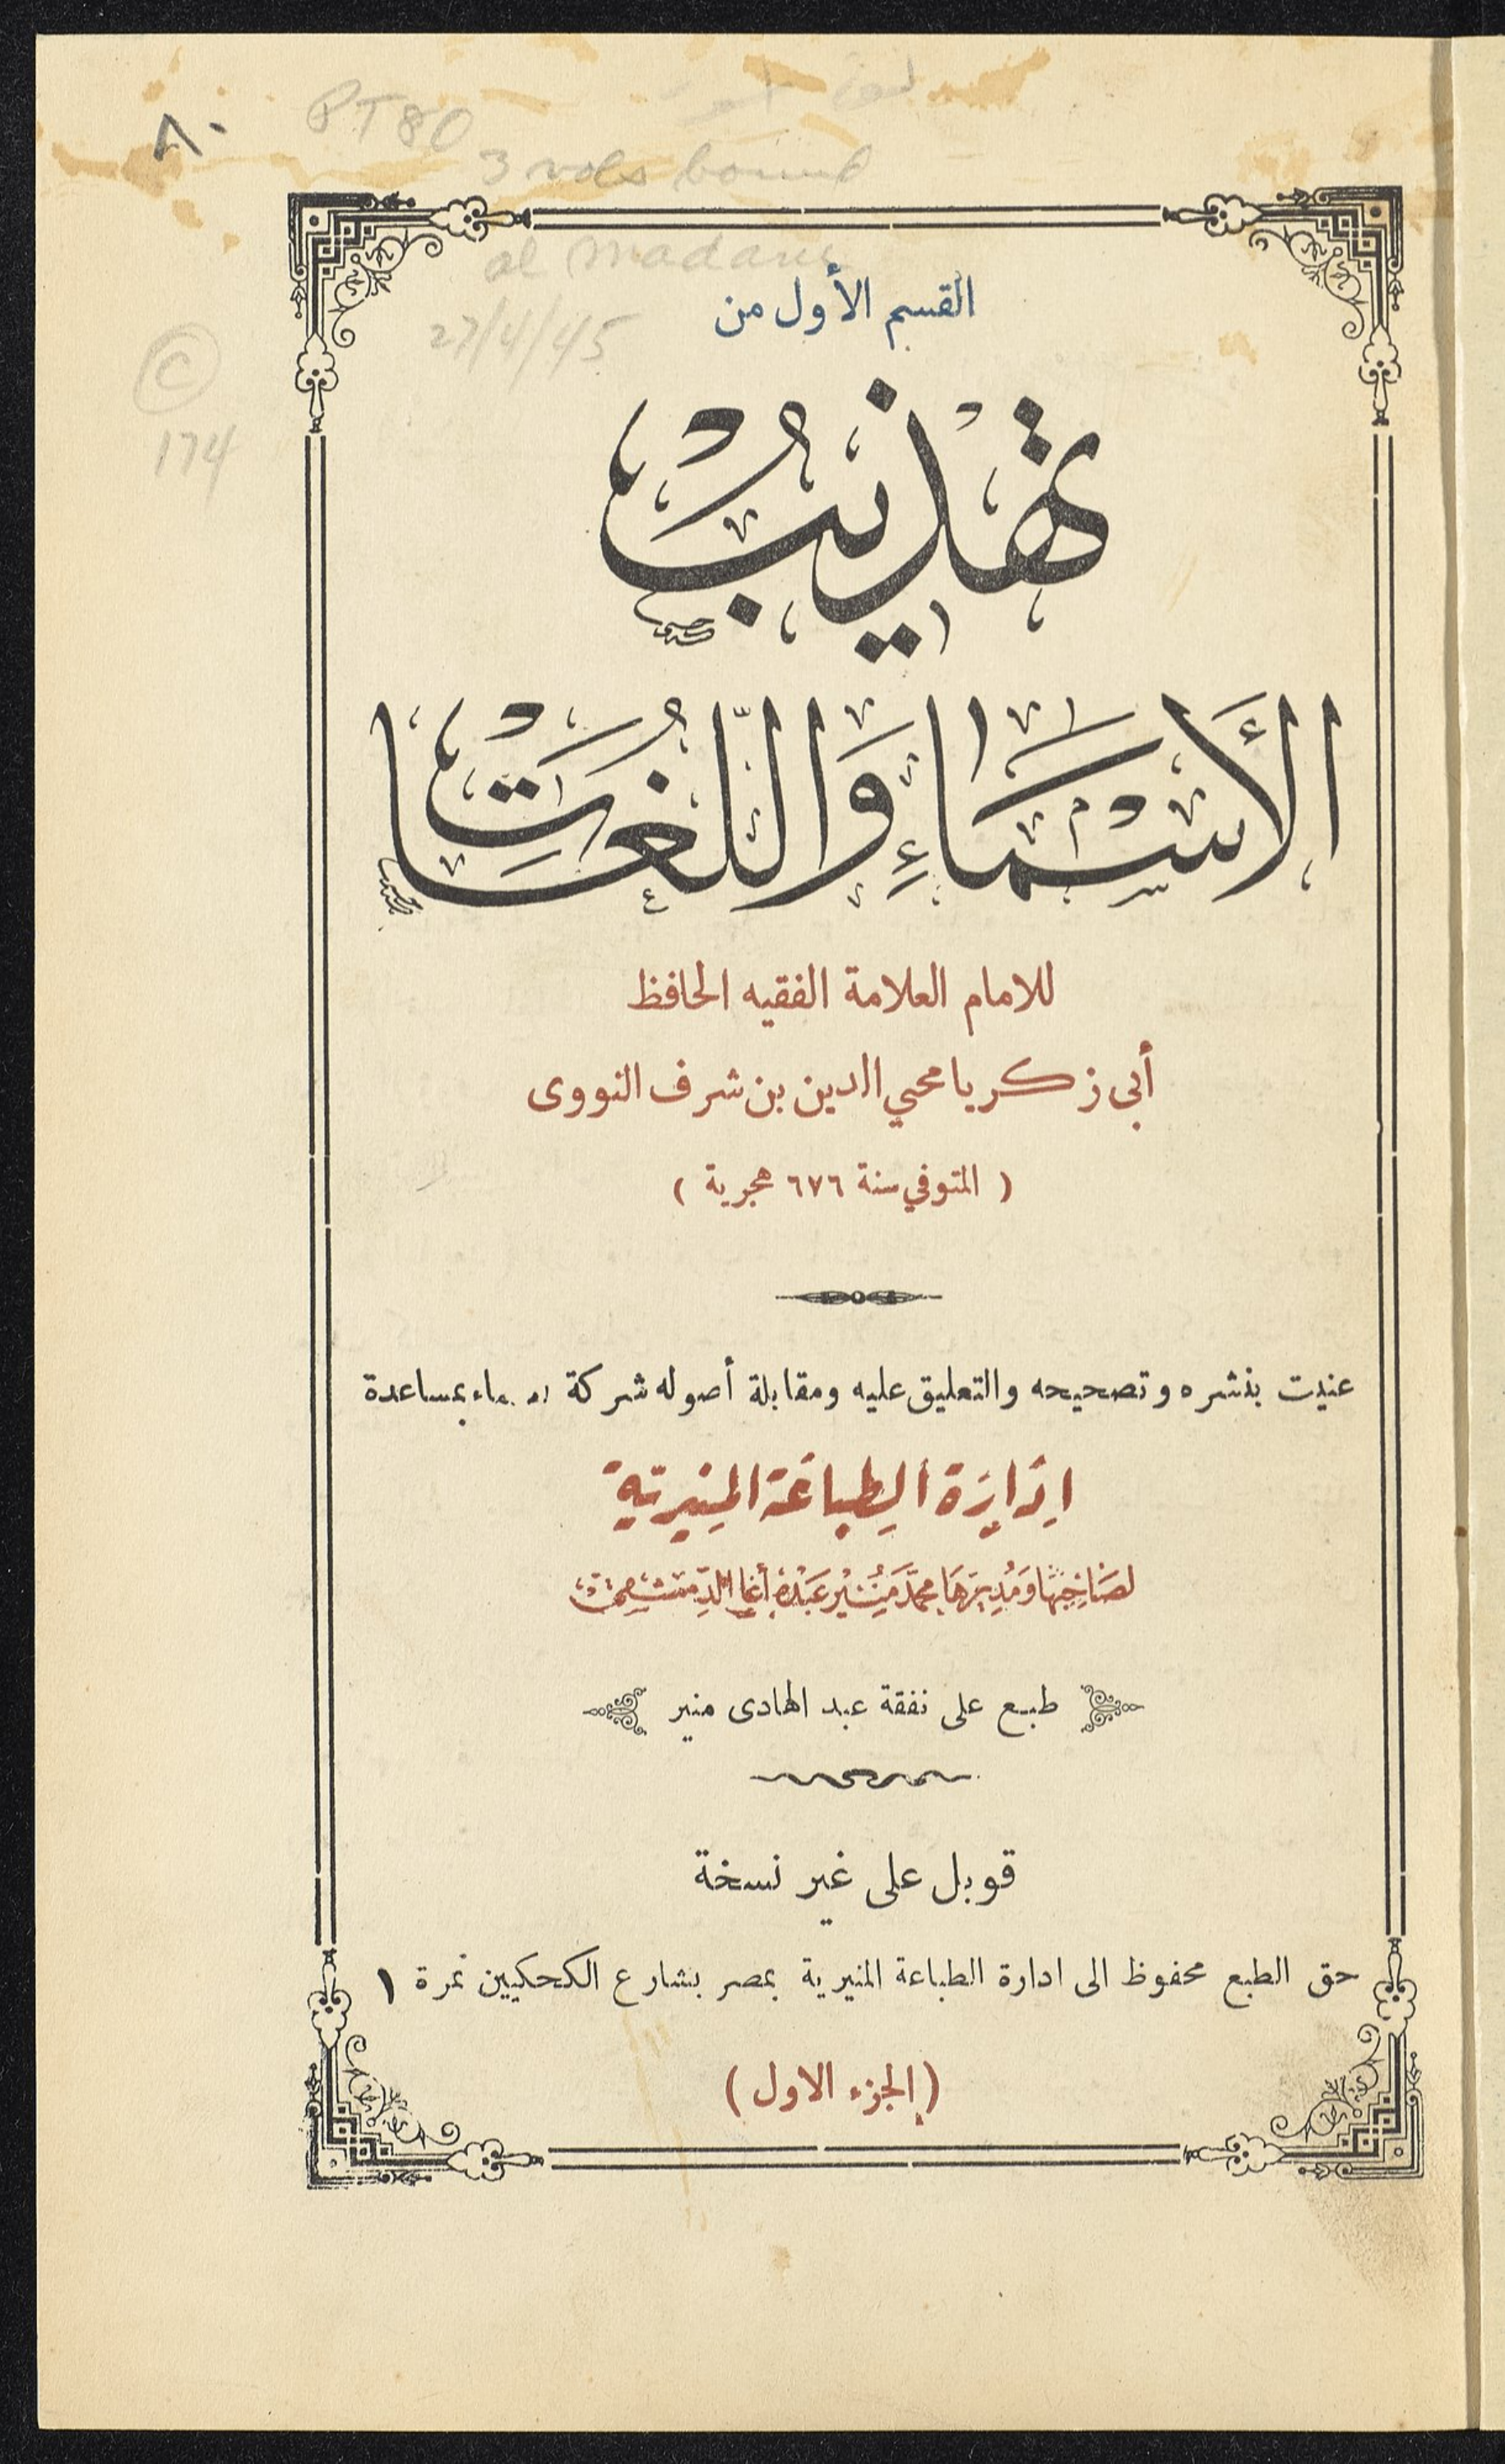 ٨٠
PT 80
3 vols bound
al madani
27/4/45
C
174
القسم الأول من
تهذيب
الأسماء واللغات
للامام العلامة الفقيه الحافظ
أبى زكريا محيي الدين بن شرف النووى
( المتوفي سنة ٦٧٦ هجرية )
عنيت بنشره وتصحيحه والتعليق عليه ومقابلة أصوله شركة العلماء بمساعدة
إِدَارَة الطِباعَة المنِيرِيّة
لصَاحِبهَا وَمُديرهَا محمَّد مُنير عَبْدُهُ أغَا الدّمشقى
طبع على نفقة عبد الهادى منير
قوبل على غير نسخة
حق الطبع محفوظ الى ادارة الطباعة المنيرية بمصر بشارع الكحكيين نمرة ١
(الجزء الاول)